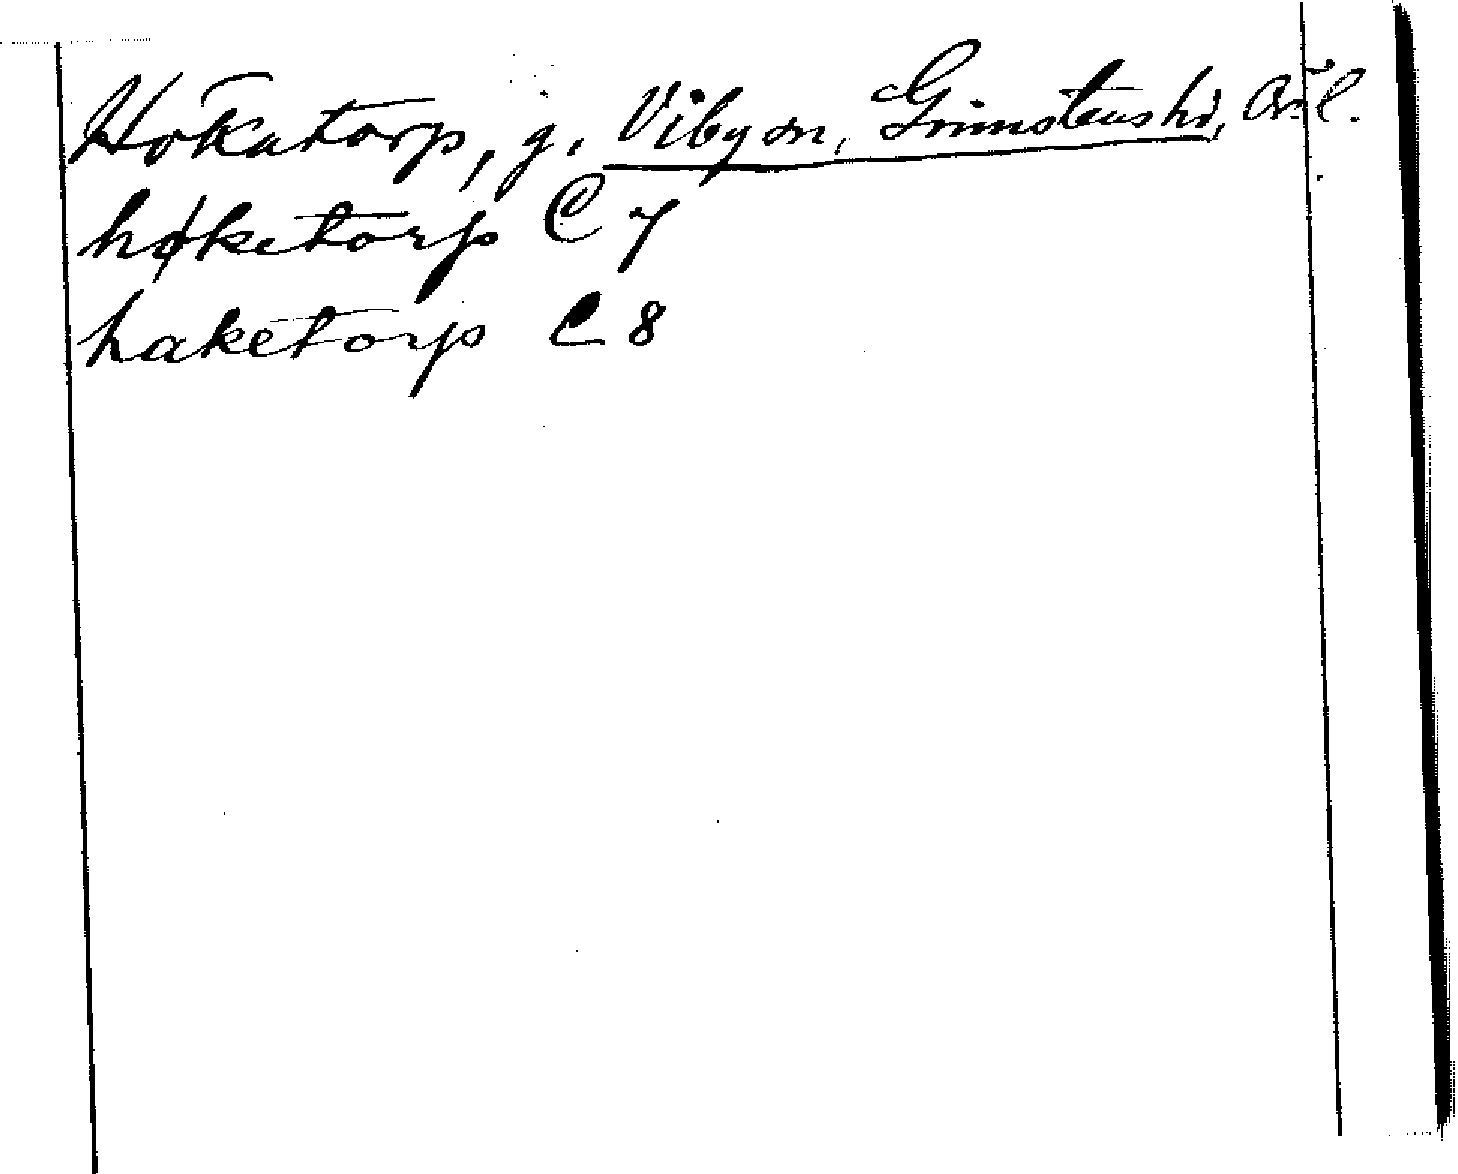 Hökatorp, g. Viby sn, Grimstens hd, Ör. l.
høketorp C 7
haketorp C 8